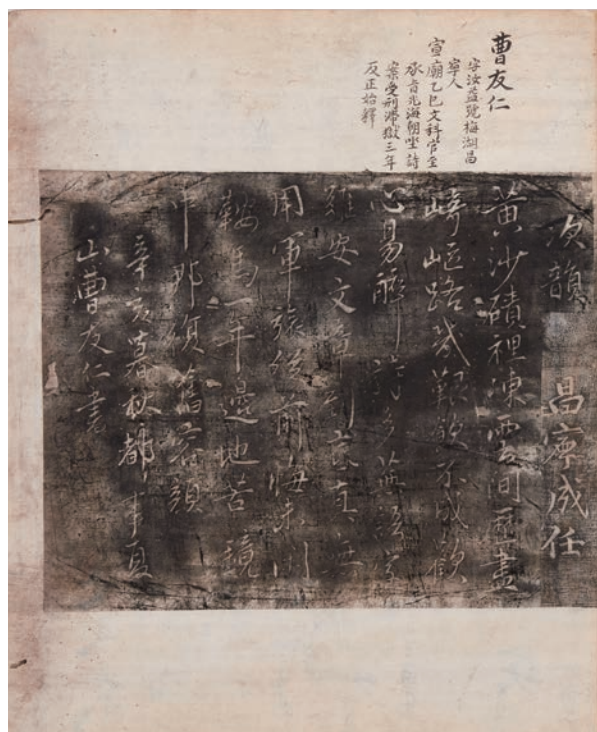 曹友仁
字汝益號梅湖昌
寧人
宣廟乙巳文科官至
承旨光海朝坐詩
案受刑滯獄三年
反正始釋
次韻 昌寧成任
黃沙磧裡凍雲間歷盡
崎嶇路幾艱飲不成歡
心易醉詩多語字
難安文章到處真無
用軍旅從前悔未閑
鞍馬一年邊地苦鏡
中那復舊容顏
辛亥暮秋都事夏
山曹友仁書